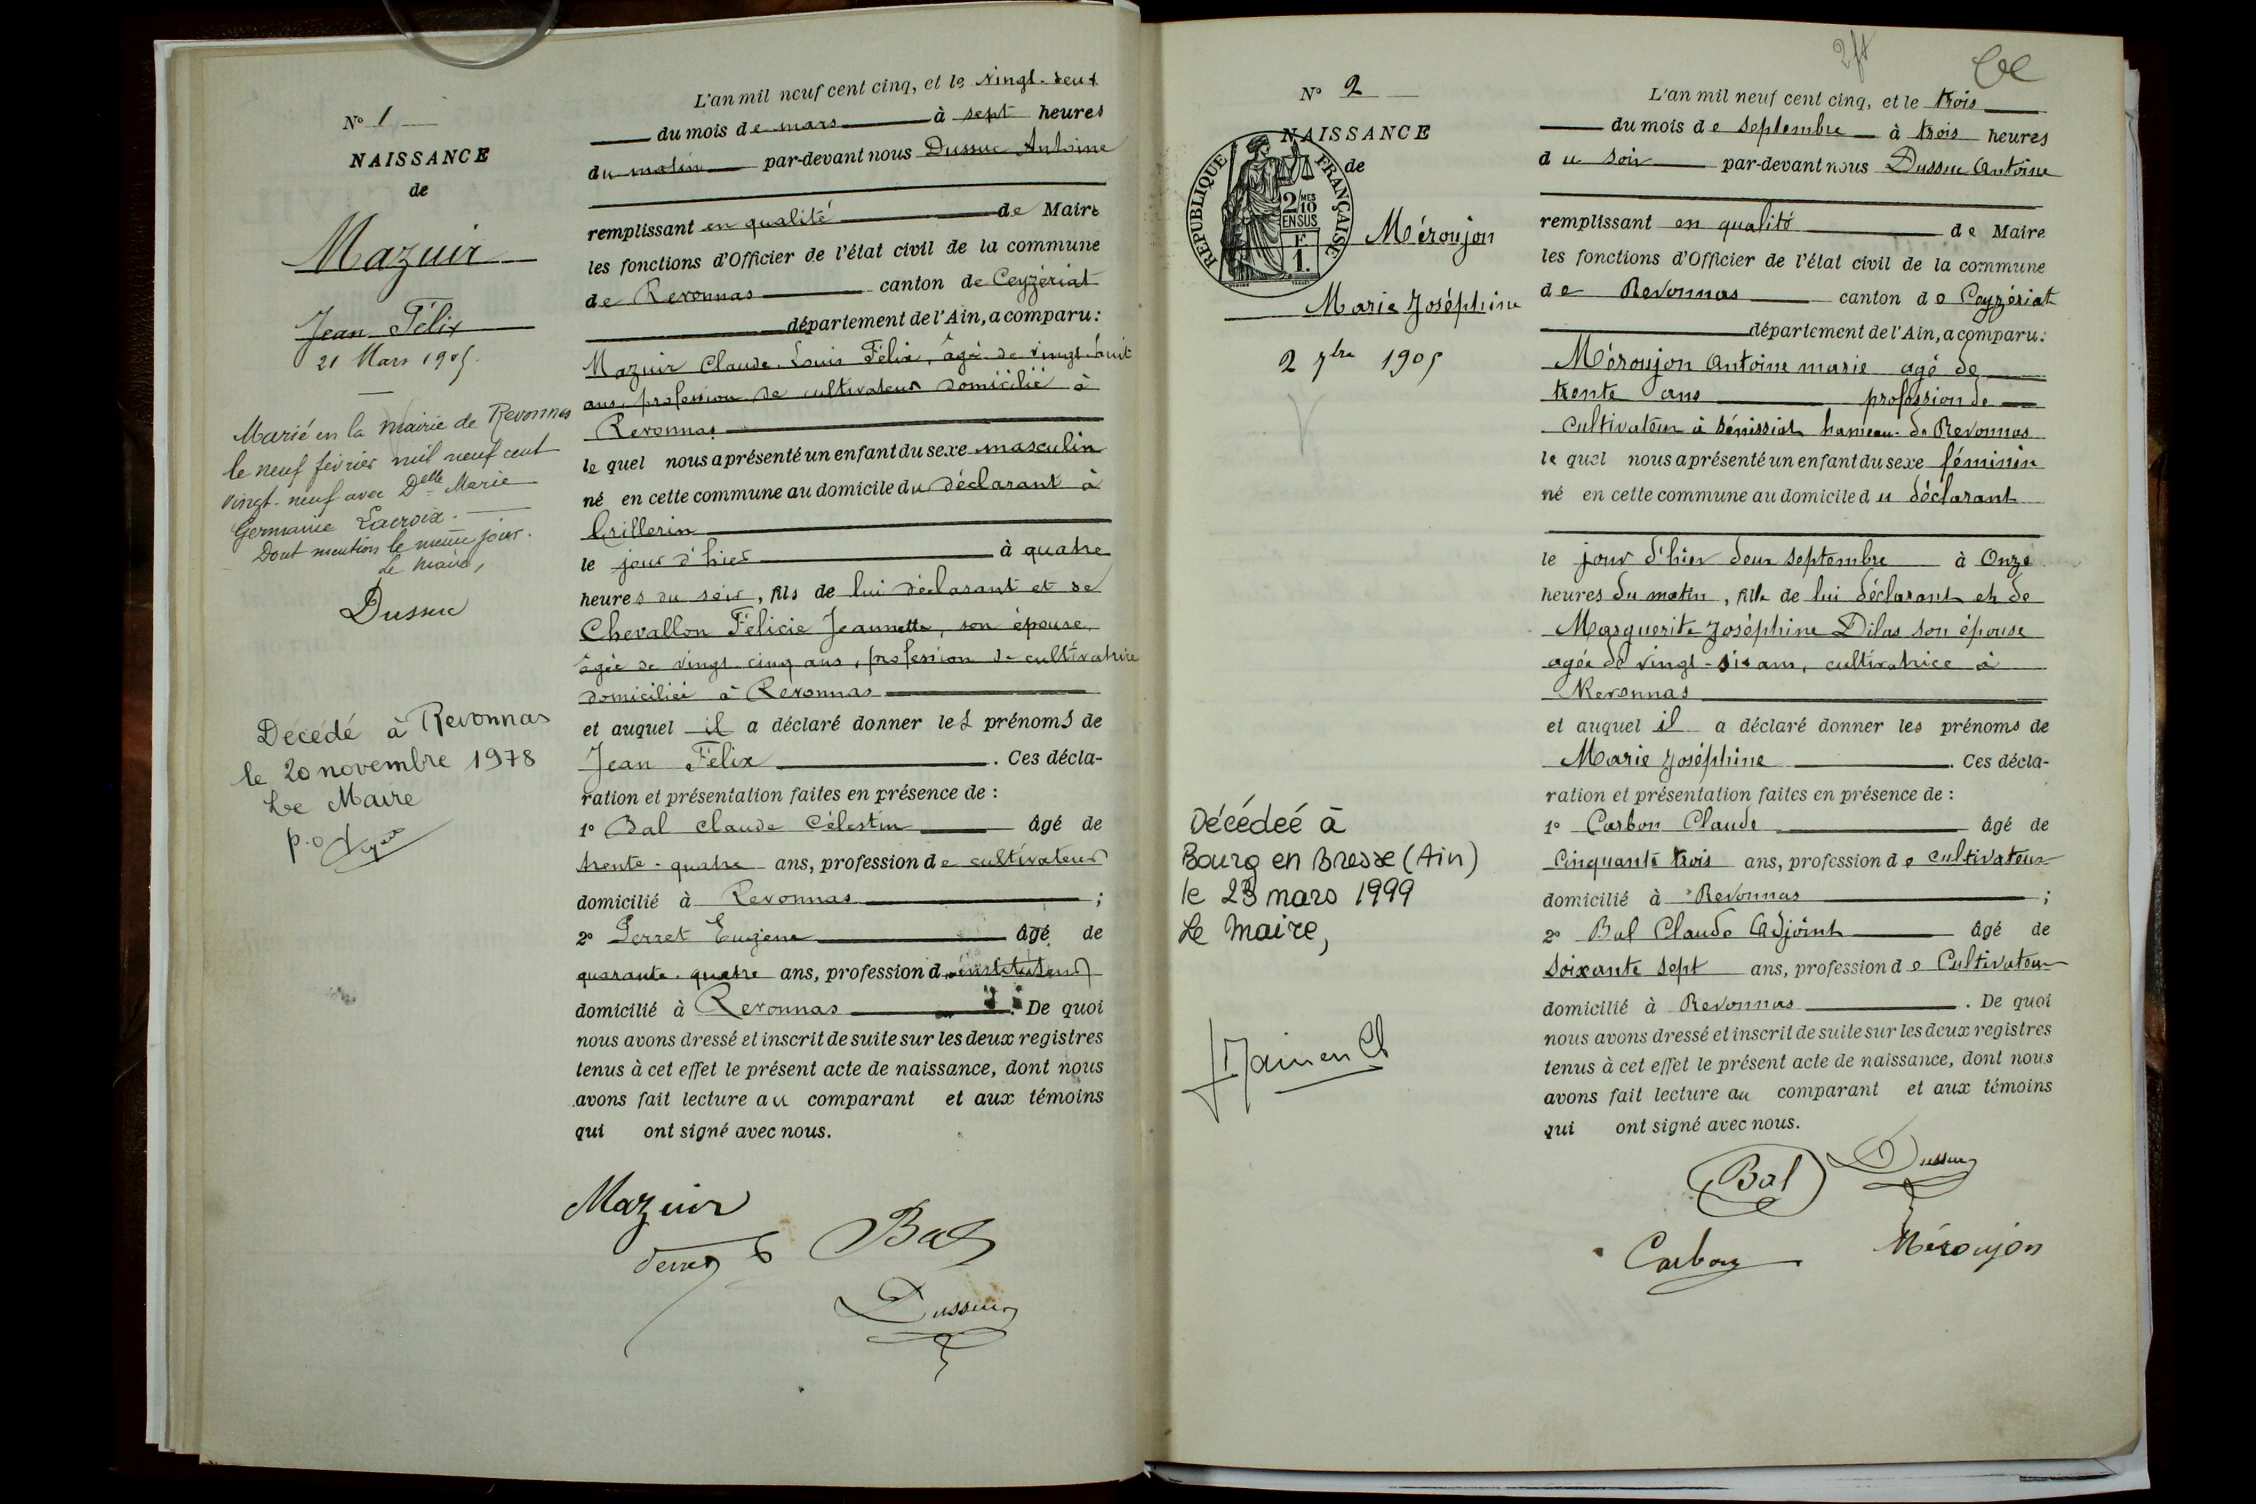 N° 1
NAISSANCE
de
Mazuir
Jean Félix
21 Mars 1905.
Marié en la mairie de Revonnas
le neuf février mil neuf cent
vingt-neuf avec Delle Marie
Germaine Lacroix.
Dont mention le même jour.
Le Maire,
Dussuc
Décédé à Revonnas
le 20 novembre 1978
Le Maire
p.o
L'an mil neuf cent cinq, et le vingt-deux
du mois de mars à sept heures
du matin par-devant nous Dussuc Antoine
remplissant en qualité de Maire
les fonctions d'Officier de l'état civil de la commune
de Revonnas canton de Ceyzériat
département de l'Ain, a comparu :
Mazuir Claude Louis Félix, âgé de vingt-huit
ans, profession de cultivateur domicilié à
Revonnas
le quel nous a présenté un enfant du sexe masculin
né en cette commune au domicile du déclarant à
Crillerin
le jour d'hier à quatre
heures du soir, fils de lui déclarant et de
Chevallon Félicie Jeannette, son épouse,
âgée de vingt cinq ans, profession de cultivatrice
domiciliée à Revonnas
et auquel il a déclaré donner les prénoms de
Jean Félix. Ces décla-
ration et présentation faites en présence de :
1° Bal Claude Célestin âgé de
trente-quatre ans, profession de cultivateur
domicilié à Revonnas ;
2° Perret Eugène âgé de
quarante-quatre ans, profession d'instituteur
domicilié à Revonnas. De quoi
nous avons dressé et inscrit de suite sur les deux registres
tenus à cet effet le présent acte de naissance, dont nous
avons fait lecture au comparant et aux témoins
qui ont signé avec nous.
Mazuir
Perret Bal
Dussuc
2ft
N° 2
NAISSANCE
de
REPUBLIQUE FRANÇAISE
2/10 MES
EN SUS
F
1.
Méroujon
Marie Joséphine
2 7bre 1905
Décédeé à
Bourg en Bresse (Ain)
le 23 mars 1999
Le Maire,
L'an mil neuf cent cinq, et le trois
du mois de septembre à trois heures
du soir par-devant nous Dussuc Antoine
remplissant en qualité de Maire
les fonctions d'Officier de l'état civil de la commune
de Revonnas canton de Ceyzériat
département de l'Ain, a comparu :
Méroujon Antoine marie agé de
trente ans profession de
cultivateur à Sénissiat hameau de Revonnas
le quel nous a présenté un enfant du sexe féminin
né en cette commune au domicile du déclarant
le jour d'hier deux septembre à Onze
heures du matin, fille de lui déclarant et de
Marguerite Joséphine Dilas son épouse
agée de vingt-six ans, cultivatrice à
Revonnas
et auquel il a déclaré donner les prénoms de
Marie Joséphine. Ces décla-
ration et présentation faites en présence de :
1° Carbon Claude âgé de
Cinquante trois ans, profession de cultivateur
domicilié à Revonnas ;
2° Bal Claude Adjoint âgé de
Soixante sept ans, profession de Cultivateur
domicilié à Revonnas. De quoi
nous avons dressé et inscrit de suite sur les deux registres
tenus à cet effet le présent acte de naissance, dont nous
avons fait lecture au comparant et aux témoins
qui ont signé avec nous.
Bal Dussuc
Carbon Méroujon